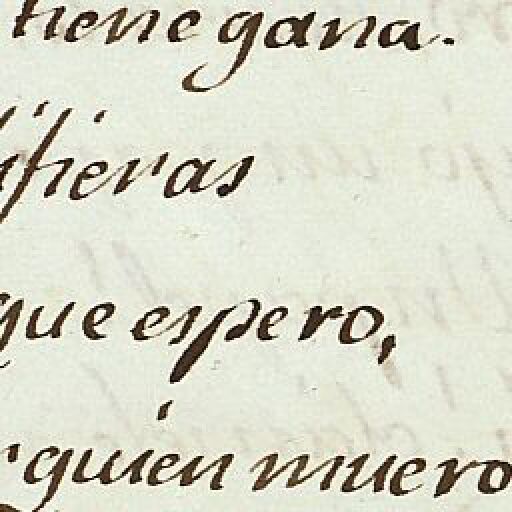 tiene gana.
que espero,
quien muero